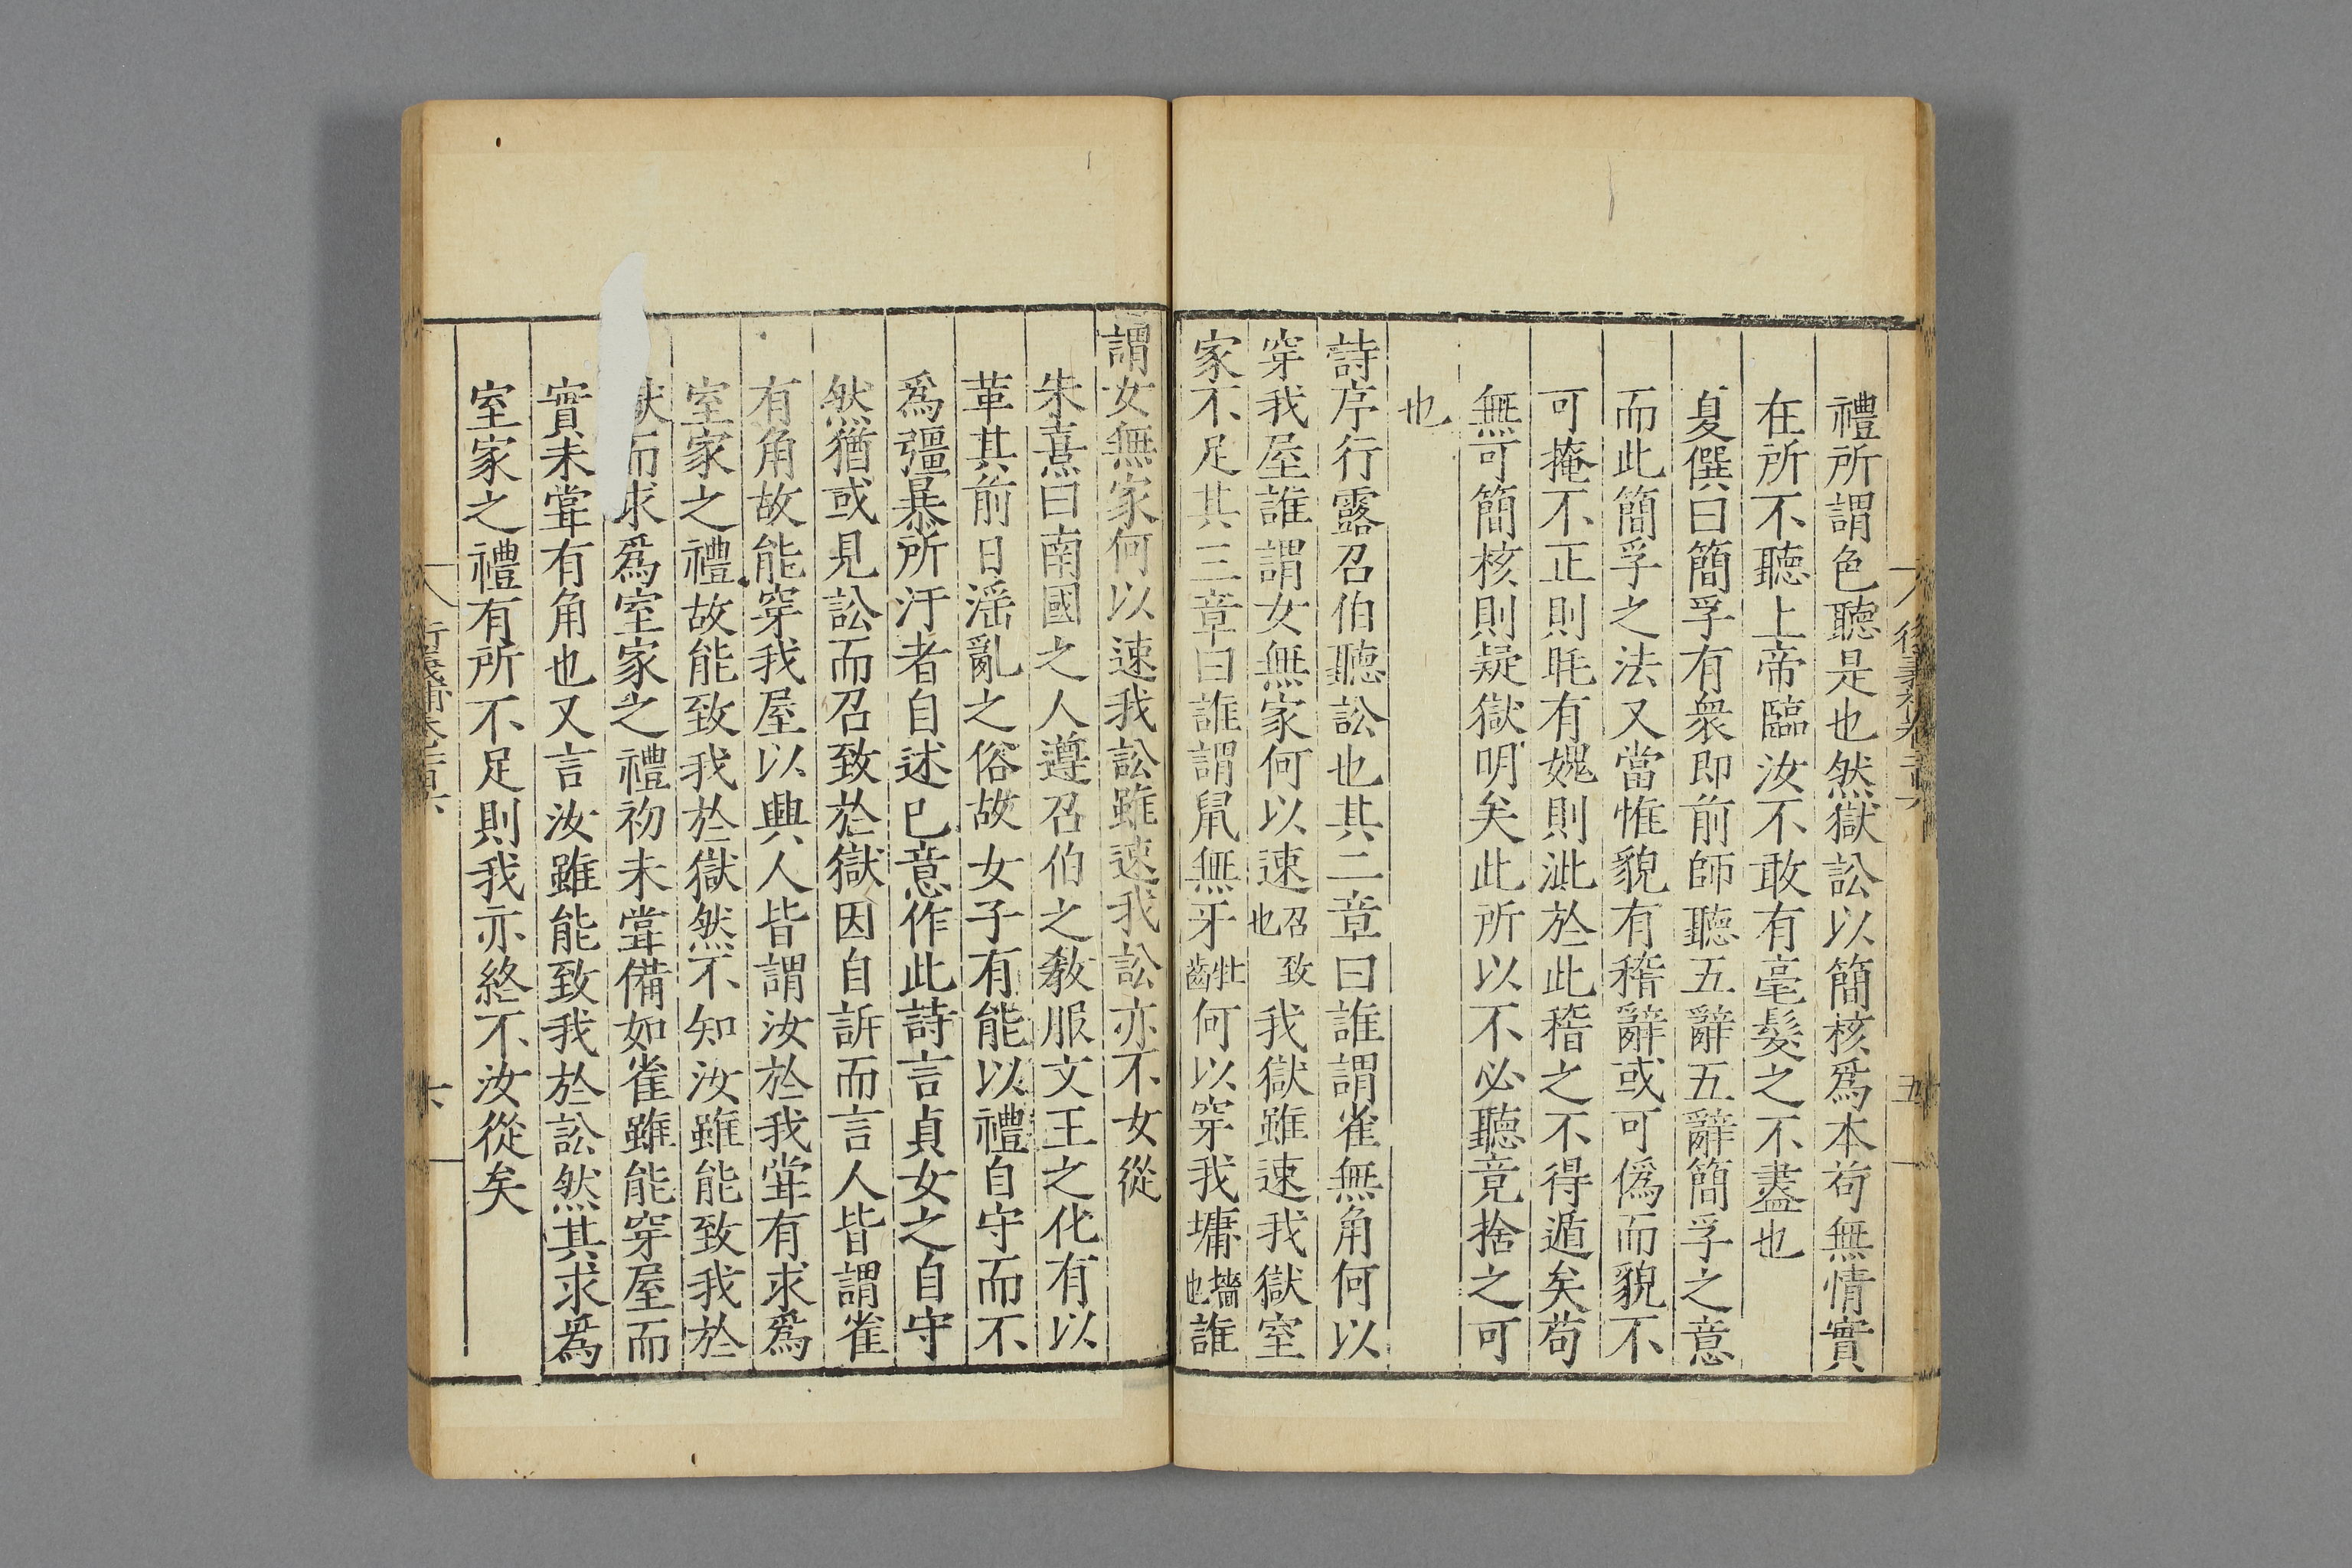 禮所謂色聽是也然獄訟以簡核爲本苟無情實
在所不聽上帝臨汝不敢有毫髮之不盡也
夏僎曰簡孚有衆即前師聽五辭五辭簡孚之意
而此簡孚之法又當惟貌有稽辭或可僞而貌不
可掩不正則眊有媿則泚於此稽之不得遁矣苟
無可簡核則疑獄明矣此所以不必聽竟捨之可
也
詩序行露召伯聽訟也其二章曰誰謂雀無角何以
穿我屋誰謂女無家何以速召致也我獄雖速我獄室
家不足其三章曰誰謂鼠無牙牡齒何以穿我墉墻也誰
謂女無家何以速我訟雖速我訟亦不女從
朱熹曰南國之人遵召伯之敎服文王之化有以
革其前日淫亂之俗故女子有能以禮自守而不
爲彊暴所汙者自述已意作此詩言貞女之自守
然猶或見訟而召致於獄因自訴而言人皆謂雀
有角故能穿我屋以興人皆謂汝於我甞有求爲
室家之禮故能致我於獄然不知汝雖能致我於
獄而求爲室家之禮初未甞備如雀雖能穿屋而
實未甞有角也又言汝雖能致我於訟然其求爲
室家之禮有所不足則我亦終不汝從矣